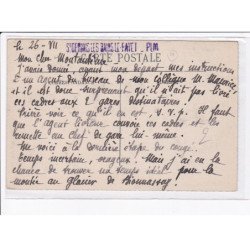 le 26-VII
ST GERVAIS LES BAINS LE FAYET P.L.M
CARTE POSTALE
Mon cher Montandon
J'avais donné, avant mon départ, mes instructions
à un agent du bureau de mon collègue M.
et il est donc surprenant qu'il n'ait pas livré
ces cadres aux 2 gares destinataires
Prière voir ce qu'il en est, s.v.p. Il faut
que l'agent livreur envoie ces cadres et les
remette au chef de gare lui même.
Me voici à la dernière étape du congé.
Temps incertain, orageux. Mais j'ai eu la
chance de trouver un temps idéal pour la
montée au glacier de Bionnassay.